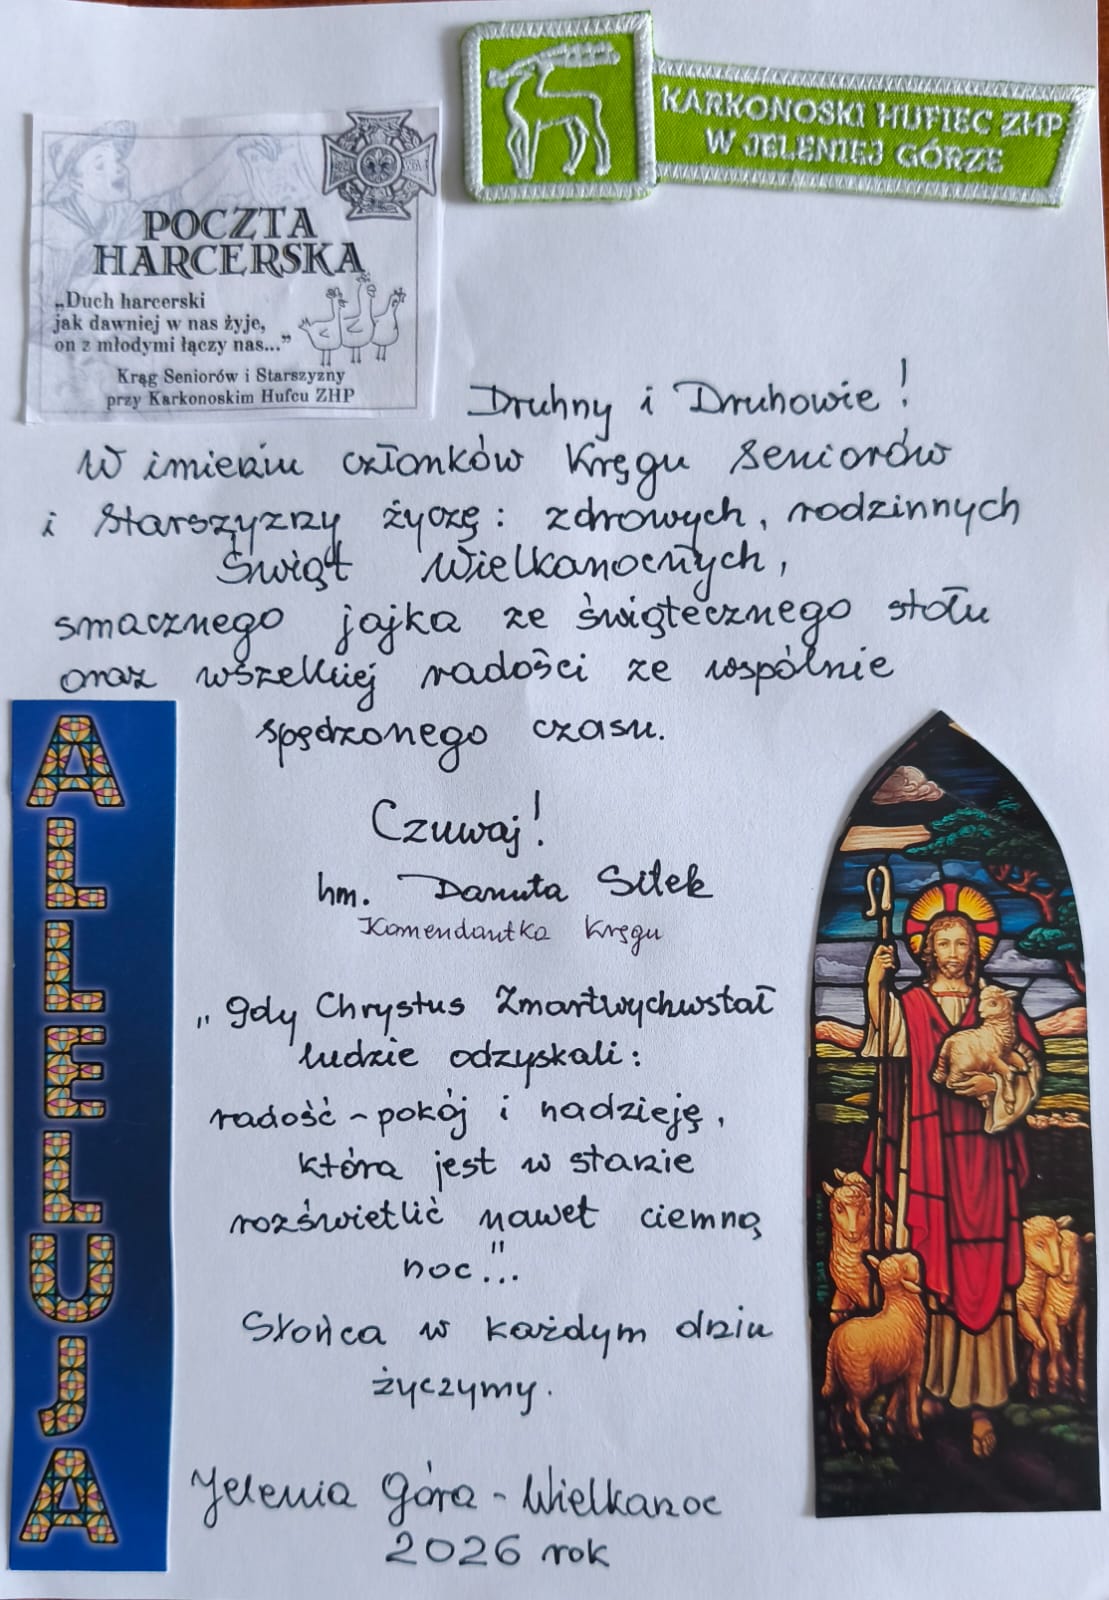 KARKONOSKI HUFIEC ZHP
W JELENIEJ GÓRZE
POCZTA
HARCERSKA
„Duch harcerski
jak dawniej w nas żyje,
on z młodymi łączy nas..."
Krąg Seniorów i Starszyzny
przy Karkonoskim Hufcu ZHP
Druhny i Druhowie!
W imieniu członków Kręgu Seniorów
i Starszyzny życzę: zdrowych, rodzinnych
Świąt Wielkanocnych,
smacznego jajka ze świątecznego stołu
oraz wszelkiej radości ze wspólnie
spędzonego czasu.
Czuwaj!
hm. Danuta Sitek
Komendantka Kręgu
„Gdy Chrystus Zmartwychwstał
ludzie odzyskali:
radość - pokój i nadzieję,
która jest w stanie
rozświetlić nawet ciemną
noc"...
Słońca w każdym dniu
życzymy.
Jelenia Góra - Wielkanoc
2026 rok
ALLELUJA